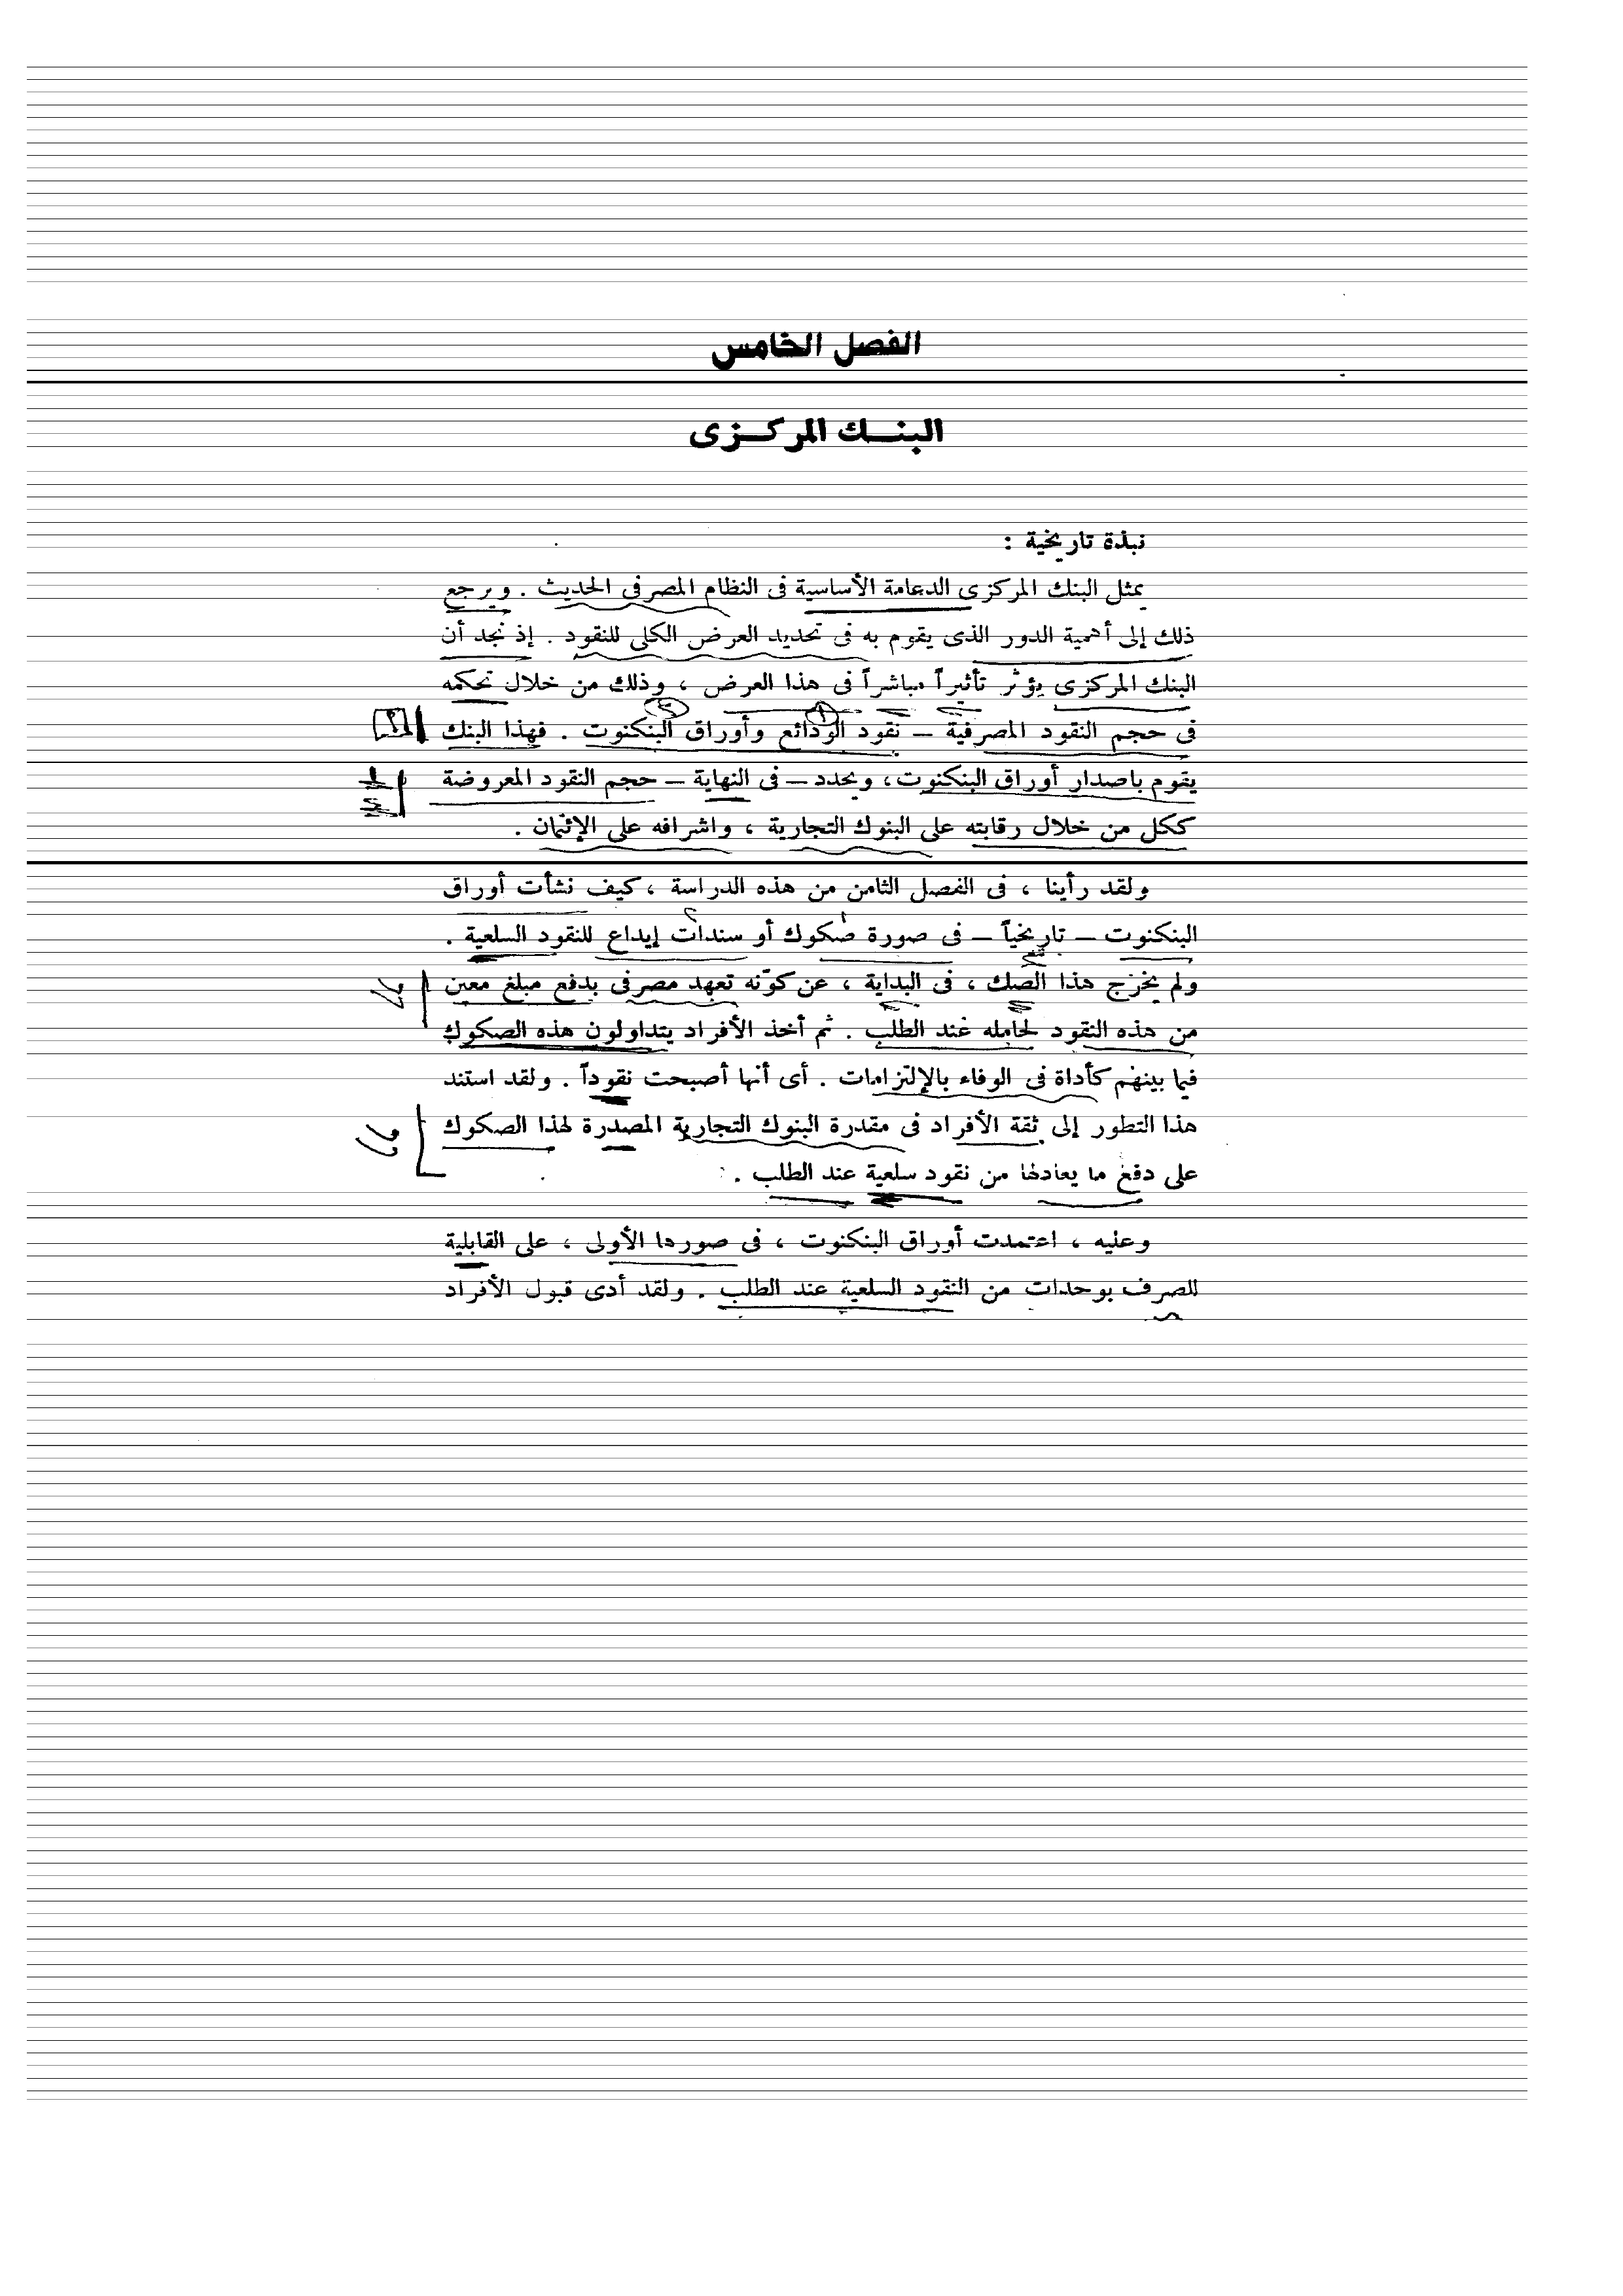 الفصل الخامس
البنـــك المركـــزى
نبذة تاريخية :
يمثل البنك المركزى الدعامة الأساسية فى النظام المصرفى الحديث . ويرجع
ذلك إلى أهمية الدور الذى يقوم به فى تحديد العرض الكلى للنقود . إذ نجد أن
البنك المركزى يؤثر تأثيراً مباشراً فى هذا العرض ، وذلك من خلال تحكمه
فى حجم النقود المصرفية – نقود الودائع وأوراق البنكنوت . فهذا البنك
يقوم باصدار أوراق البنكنوت ، ويحدد – فى النهاية – حجم النقود المعروضة
ككل من خلال رقابته على البنوك التجارية ، واشرافه على الإئتمان .
ولقد رأينا ، فى الفصل الثامن من هذه الدراسة ، كيف نشأت أوراق
البنكنوت – تاريخياً – فى صورة صكوك أو سندات إيداع للنقود السلعية .
ولم يخرج هذا الصك ، فى البداية ، عن كونه تعهد مصرفى بدفع مبلغ معين
من هذه النقود لحامله عند الطلب . ثم أخذ الأفراد يتداولون هذه الصكوك
فيما بينهم كأداة فى الوفاء بالإلتزامات . أى أنها أصبحت نقوداً . ولقد استند
هذا التطور إلى ثقة الأفراد فى مقدرة البنوك التجارية المصدرة لهذا الصكوك
على دفع ما يعادلها من نقود سلعية عند الطلب .
وعليه ، اعتمدت أوراق البنكنوت ، فى صورها الأولى ، على القابلية
للصرف بوحدات من النقود السلعية عند الطلب . ولقد أدى قبول الأفراد